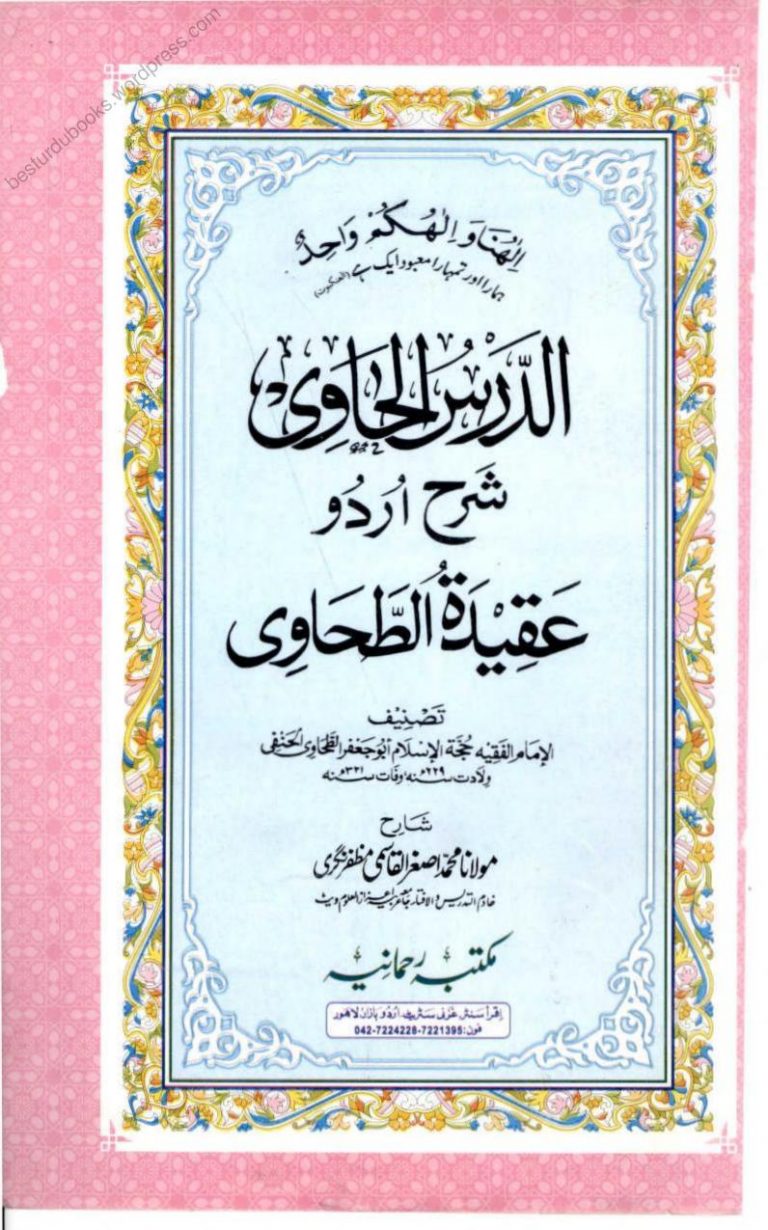 besturdubooks.wordpress.com
اِلٰهُنَا وَ اِلٰهُكُمْ وَاحِدٌ
ہمارا اور تمہارا معبود ایک ہے (العنکبوت)
الدَّرسُ الحَاوِی
شَرح اُردُو
عَقِیْدَةُ الطَّحَاوِی
تَصْنِیْف
الإمام الفقیہ حُجَّة الإسلام أبو جعفر الطَّحاوی الحَنَفِی
ولادت سنہ ۲۲۹ھ وفات سنہ ۳۲۱ھ
شارح
مولانا محمد اصغر القاسمی مظفر نگری
خادم التدریس والافتاء جامعہ عربیہ اعزاز العلوم ویٹ
مکتبہ رحمانیہ
اِقرأ سَنٹر غزنی سٹریٹ اُردُو بازار لاہور
فون: 042-7224228-7221395